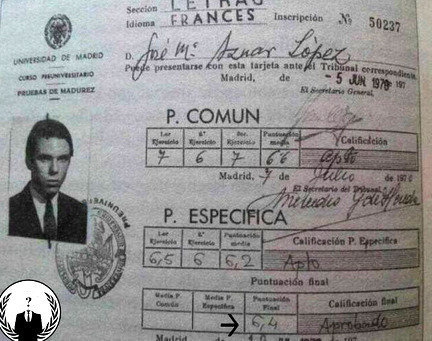 Sección LETRAS
Idioma FRANCES Inscripción Nº 50237
UNIVERSIDAD DE MADRID
CURSO PREUNIVERSITARIO
PRUEBAS DE MADUREZ
D. José Mª Aznar López
Puede presentarse con esta tarjeta ante el Tribunal correspondiente.
Madrid, de -5 JUN 1970 197
El Secretario General,
P. COMUN
1.er Ejercicio 2.º Ejercicio 3er. Ejercicio Puntuación media Calificación
7 6 7 6,6 apto
Madrid, 7 de Julio de 1970
El Secretario del Tribunal,
P. ESPECIFICA
1.er Ejercicio 2.º Ejercicio Puntuación media Calificación P. Específica
6,5 6 6,2 Apto
Puntuación final
Media P. Común Media P. Específica Puntuación Final Calificación Final
6,4 Aprobado
Madrid de de 197